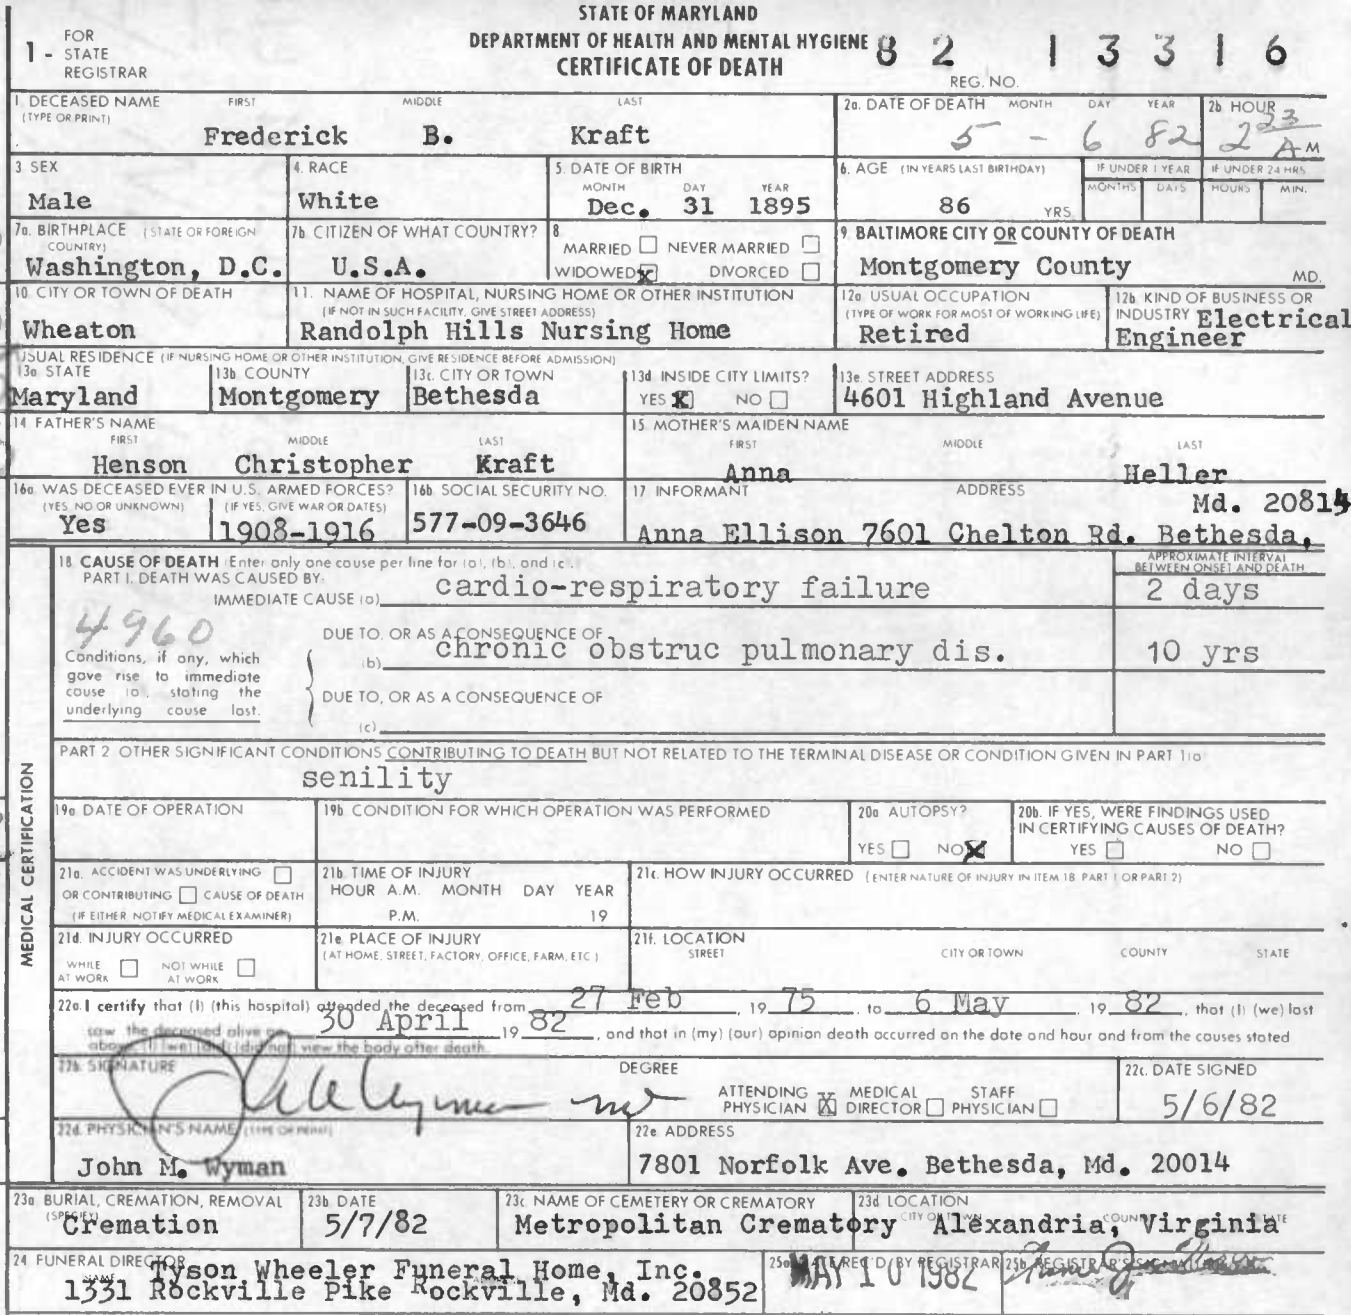 STATE OF MARYLAND
DEPARTMENT OF HEALTH AND MENTAL HYGIENE 82 13316
CERTIFICATE OF DEATH
REG. NO.
1 - FOR STATE REGISTRAR
1. DECEASED NAME FIRST MIDDLE LAST
(TYPE OR PRINT)
Frederick B. Kraft
2a. DATE OF DEATH MONTH DAY YEAR
5 - 6 82
2b. HOUR
2 23 A M
3. SEX
Male
4. RACE
White
5. DATE OF BIRTH
MONTH DAY YEAR
Dec. 31 1895
6. AGE (IN YEARS LAST BIRTHDAY)
86 YRS.
IF UNDER 1 YEAR
MONTHS DAYS
IF UNDER 24 HRS
HOURS MIN.
7a. BIRTHPLACE (STATE OR FOREIGN COUNTRY)
Washington, D.C.
7b. CITIZEN OF WHAT COUNTRY?
U.S.A.
8.
MARRIED NEVER MARRIED
WIDOWED X DIVORCED
9. BALTIMORE CITY OR COUNTY OF DEATH
Montgomery County MD.
10. CITY OR TOWN OF DEATH
Wheaton
11. NAME OF HOSPITAL, NURSING HOME OR OTHER INSTITUTION
(IF NOT IN SUCH FACILITY, GIVE STREET ADDRESS)
Randolph Hills Nursing Home
12a. USUAL OCCUPATION
(TYPE OF WORK FOR MOST OF WORKING LIFE)
Retired
12b. KIND OF BUSINESS OR
INDUSTRY Electrical
Engineer
USUAL RESIDENCE (IF NURSING HOME OR OTHER INSTITUTION, GIVE RESIDENCE BEFORE ADMISSION)
13a. STATE
Maryland
13b. COUNTY
Montgomery
13c. CITY OR TOWN
Bethesda
13d. INSIDE CITY LIMITS?
YES X NO
13e. STREET ADDRESS
4601 Highland Avenue
14. FATHER'S NAME
FIRST MIDDLE LAST
Henson Christopher Kraft
15. MOTHER'S MAIDEN NAME
FIRST MIDDLE LAST
Anna Heller
16a. WAS DECEASED EVER IN U.S. ARMED FORCES?
(YES, NO OR UNKNOWN) (IF YES, GIVE WAR OR DATES)
Yes 1908-1916
16b. SOCIAL SECURITY NO.
577-09-3646
17. INFORMANT ADDRESS
Md. 20814
Anna Ellison 7601 Chelton Rd. Bethesda,
MEDICAL CERTIFICATION
18. CAUSE OF DEATH (Enter only one cause per line for (a), (b), and (c).)
APPROXIMATE INTERVAL BETWEEN ONSET AND DEATH
PART I. DEATH WAS CAUSED BY:
IMMEDIATE CAUSE (a) cardio-respiratory failure 2 days
4960
DUE TO, OR AS A CONSEQUENCE OF
(b) chronic obstruc pulmonary dis. 10 yrs
Conditions, if any, which
gave rise to immediate
cause (a), stating the
underlying cause last.
DUE TO, OR AS A CONSEQUENCE OF
(c)
PART 2 OTHER SIGNIFICANT CONDITIONS CONTRIBUTING TO DEATH BUT NOT RELATED TO THE TERMINAL DISEASE OR CONDITION GIVEN IN PART 1(a)
senility
19a. DATE OF OPERATION
19b. CONDITION FOR WHICH OPERATION WAS PERFORMED
20a AUTOPSY?
YES NO X
20b. IF YES, WERE FINDINGS USED
IN CERTIFYING CAUSES OF DEATH?
YES NO
21a. ACCIDENT WAS UNDERLYING
OR CONTRIBUTING CAUSE OF DEATH
(IF EITHER NOTIFY MEDICAL EXAMINER)
21b. TIME OF INJURY
HOUR A.M. MONTH DAY YEAR
P.M. 19
21c. HOW INJURY OCCURRED (ENTER NATURE OF INJURY IN ITEM 18 PART 1 OR PART 2)
21d. INJURY OCCURRED
WHILE AT WORK NOT WHILE AT WORK
21e. PLACE OF INJURY
(AT HOME, STREET, FACTORY, OFFICE, FARM, ETC.)
21f. LOCATION
STREET CITY OR TOWN COUNTY STATE
22a. I certify that (I) (this hospital) attended the deceased from 27 Feb 19 75 to 6 May 19 82, that (I) (we) last
saw the deceased alive on 30 April 19 82, and that in (my) (our) opinion death occurred on the date and hour and from the causes stated
above, (I) (we) (did) (did not) view the body after death.
22b. SIGNATURE
DEGREE
ATTENDING PHYSICIAN X MEDICAL DIRECTOR STAFF PHYSICIAN
22c. DATE SIGNED
5/6/82
22d. PHYSICIAN'S NAME (TYPE OR PRINT)
John M. Wyman
22e. ADDRESS
7801 Norfolk Ave. Bethesda, Md. 20014
23a. BURIAL, CREMATION, REMOVAL
(SPECIFY)
Cremation
23b. DATE
5/7/82
23c. NAME OF CEMETERY OR CREMATORY
Metropolitan Crematory
23d. LOCATION
CITY OR TOWN COUNTY STATE
Alexandria, Virginia
24. FUNERAL DIRECTOR
NAME
Tyson Wheeler Funeral Home, Inc.
1331 Rockville Pike Rockville, Md. 20852
25a. DATE REC'D BY REGISTRAR
MAY 10 1982
25b. REGISTRAR'S SIGNATURE